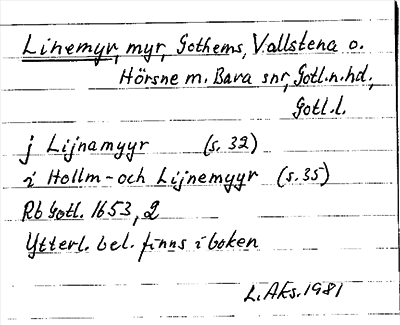 Linemyr, myr, Gothems, Vallstena o.
Hörsne m. Bara snr, Gotl.n.hd.,
Gotl.l.
j Lijnamyyr (s. 32)
i Hollm- och Lijnemyyr (s. 35)
Rb Gotl. 1653, 2
Ytterl. bel. finns i boken
L. Aks. 1981